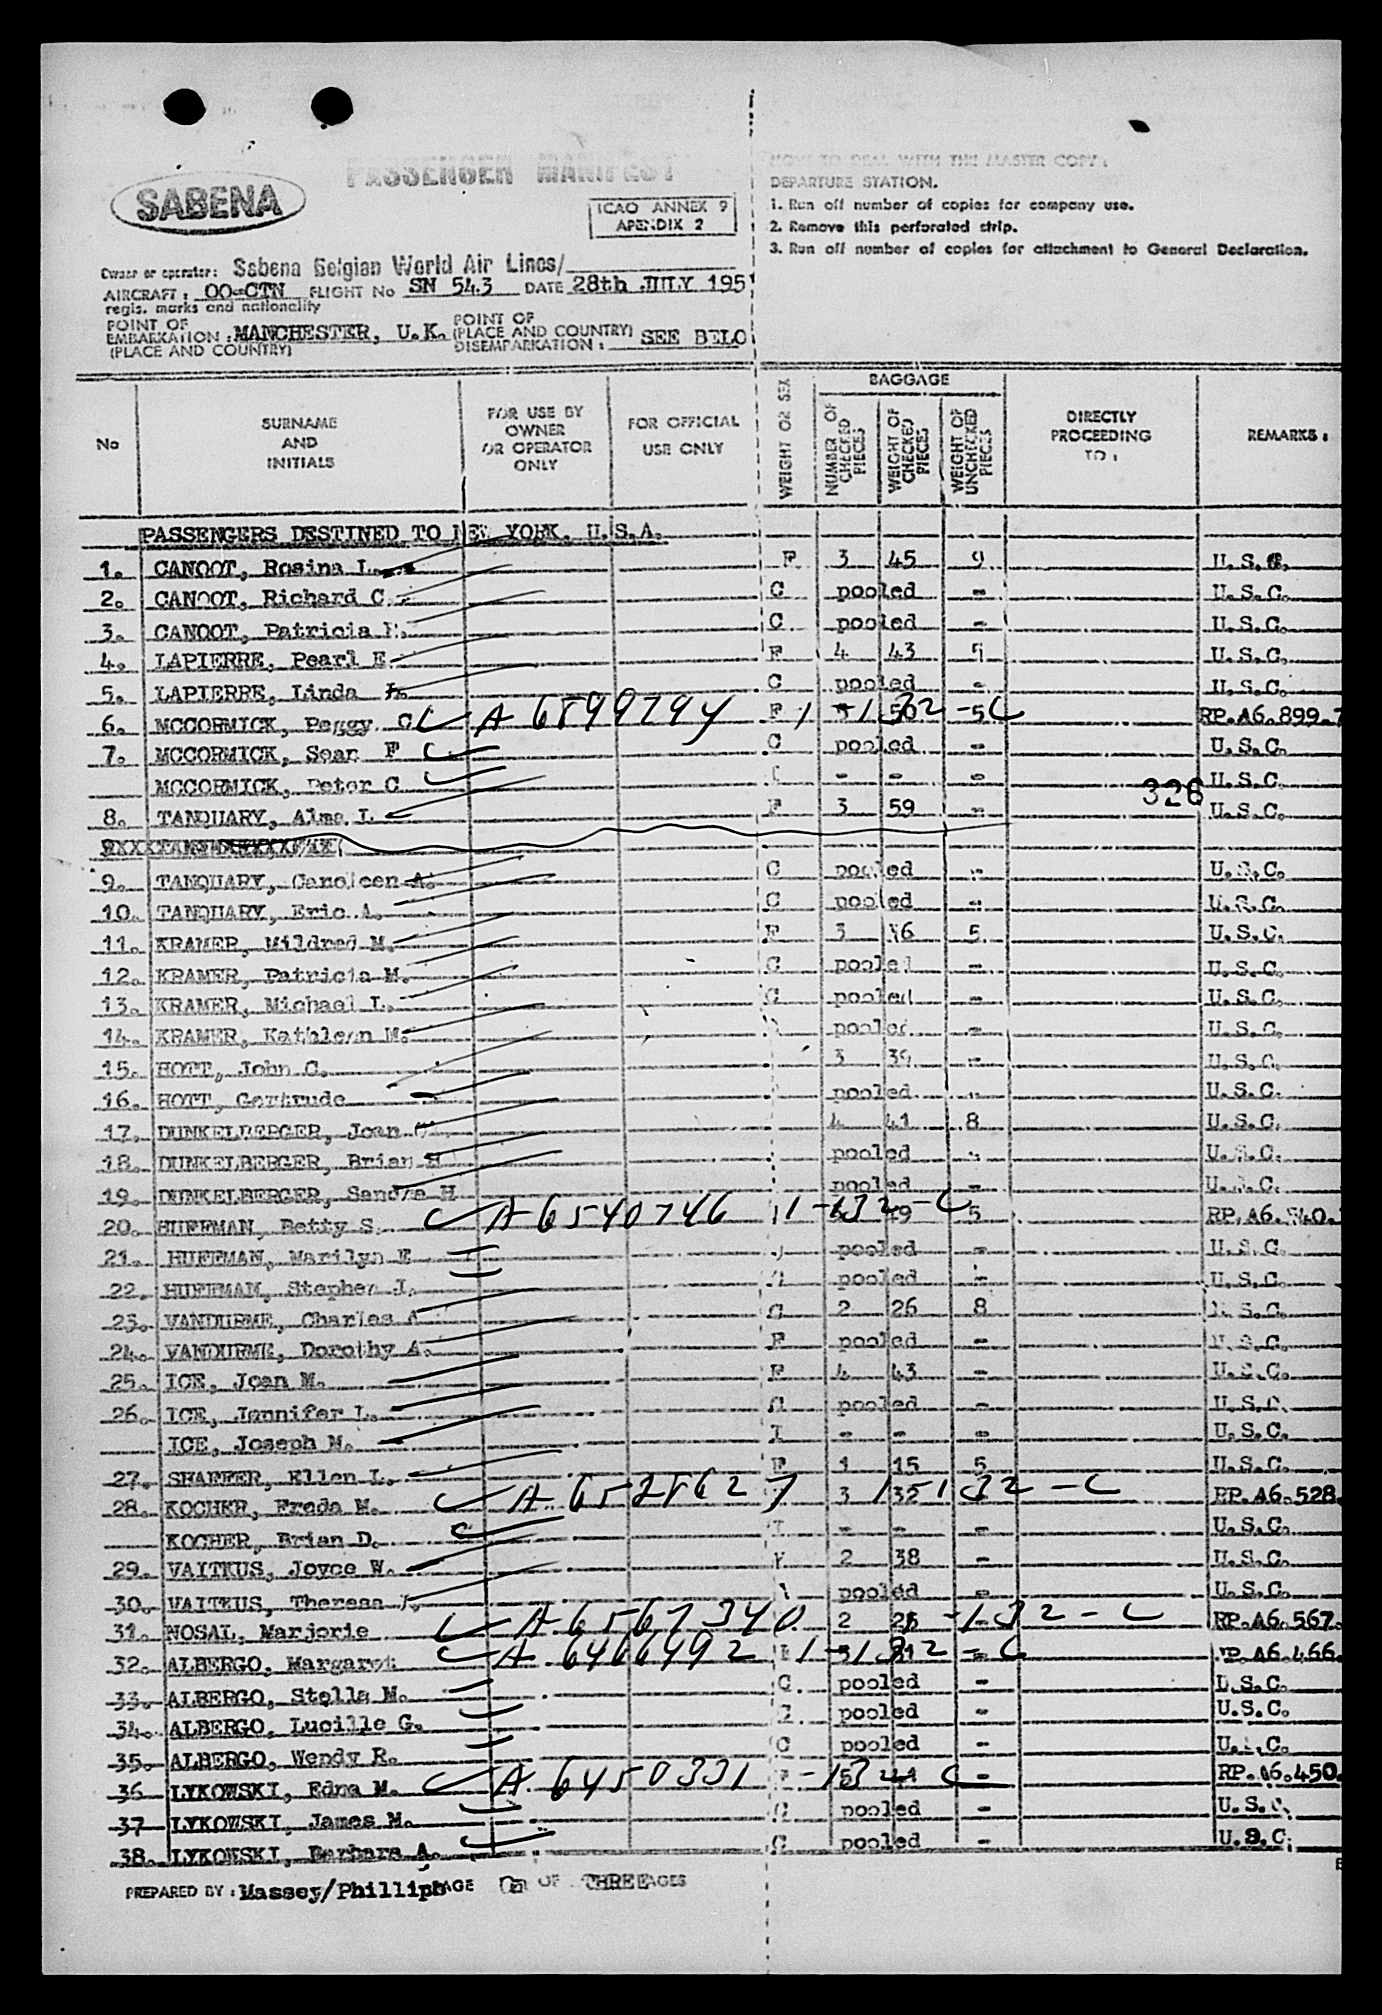 PASSENGER MANIFEST
SABENA
ICAO ANNEX 9
APENDIX 2
HOW TO DEAL WITH THIS MASTER COPY :
DEPARTURE STATION.
1. Run off number of copies for company use.
2. Remove this perforated strip.
3. Run off number of copies for attachment to General Declaration.
Owner or operator: Sabena Belgian World Air Lines/
AIRCRAFT : OO-CTN FLIGHT No SN 543 DATE 28th JULY 195
regis. marks and nationality
POINT OF EMBARKATION : MANCHESTER, U.K. POINT OF (PLACE AND COUNTRY) DISEMBARKATION : SEE BELO
(PLACE AND COUNTRY)
No SURNAME AND INITIALS FOR USE BY OWNER OR OPERATOR ONLY FOR OFFICIAL USE ONLY WEIGHT OR SEX BAGGAGE NUMBER OF CHECKED PIECES WEIGHT OF CHECKED PIECES WEIGHT OF UNCHECKED PIECES DIRECTLY PROCEEDING TO : REMARKS :
PASSENGERS DESTINED TO NEW YORK. U.S.A.
1. CANOOT, Rosina L. F 3 45 9 U.S.C.
2. CANOOT, Richard C. C pooled - U.S.C.
3. CANOOT, Patricia C pooled - U.S.C.
4. LAPIERRE, Pearl E F 4 43 5 U.S.C.
5. LAPIERRE, Linda C pooled - U.S.C.
6. MCCORMICK, Peggy C A 6899794 F 1-132-C 5 RP.A6.899.7
7. MCCORMICK, Sean F C pooled - U.S.C.
MCCORMICK, Peter C - - - U.S.C.
326
8. TANQUARY, Alma L F 3 59 - U.S.C.
9. TANQUARY, Caroleen A. C pooled - U.S.C.
10. TANQUARY, Eric A. C pooled - U.S.C.
11. KRAMER, Mildred M. F 3 5 U.S.C.
12. KRAMER, Patricia M. C pooled - U.S.C.
13. KRAMER, Michael L. C pooled - U.S.C.
14. KRAMER, Kathleen M. pooled - U.S.C.
15. HOTT, John C. 3 39 - U.S.C.
16. HOTT, Gertrude pooled U.S.C.
17. DUNKELBERGER, Joan 4 41 8 U.S.C.
18. DUNKELBERGER, Brian H pooled U.S.C.
19. DUNKELBERGER, Sandra H pooled - U.S.C.
20. HUFFMAN, Betty S. A 6540746 1-132-C 49 5 RP.A6.540.
21. HUFFMAN, Marilyn E pooled - U.S.C.
22. HUFFMAN, Stephen J. pooled - U.S.C.
23. VANDURME, Charles A C 2 26 8 U.S.C.
24. VANDURME, Dorothy A. F pooled - U.S.C.
25. ICE, Joan M. F 4 43 - U.S.C.
26. ICE, Jennifer L. C pooled - U.S.C.
ICE, Joseph M. I - - - U.S.C.
27. SHAFFER, Ellen L. F 1 15 5 U.S.C.
28. KOCHER, Freda M. A 6528627 3 32 1-132-C RP.A6.528.
KOCHER, Brian D. I - - - U.S.C.
29. VAITKUS, Joyce W. F 2 38 - U.S.C.
30. VAITKUS, Theresa pooled - U.S.C.
31. NOSAL, Marjorie A 6567340 2 -132-C RP.A6.567.
32. ALBERGO, Margaret A 6466492 F 1-132-C RP.A6.466.
33. ALBERGO, Stella M. C pooled - U.S.C.
34. ALBERGO, Lucille G. C pooled - U.S.C.
35. ALBERGO, Wendy R. C pooled - U.S.C.
36 LYKOWSKI, Edna M. A 6450331 F 5 41 - RP.A6.450.
37 LYKOWSKI, James M. C pooled - U.S.C.
38. LYKOWSKI, Barbara A. C pooled - U.S.C.
PREPARED BY : Massey/Phillips PAGE OF THREE PAGES